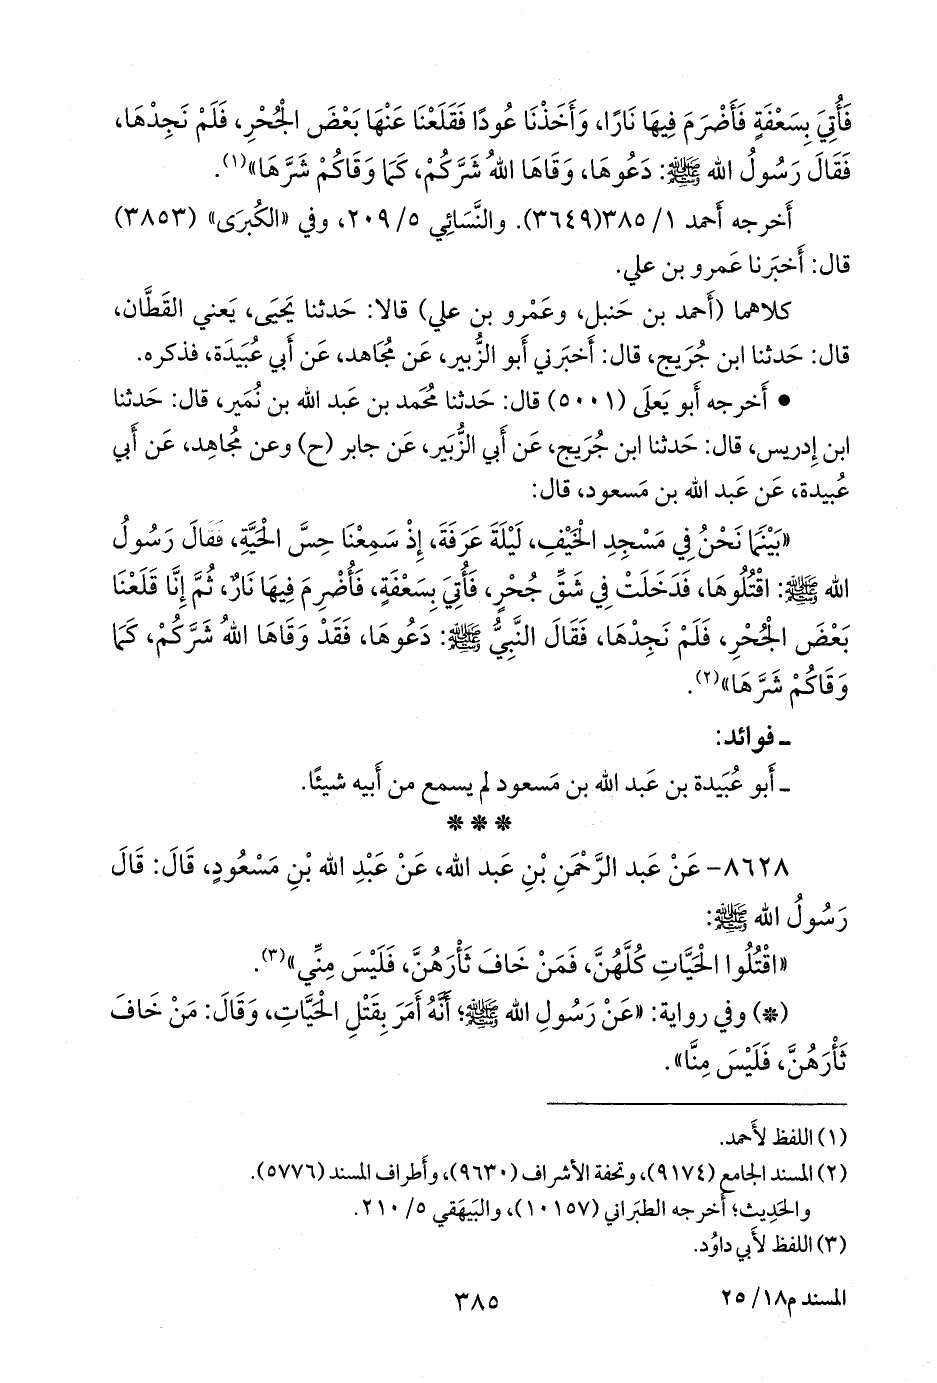 فَأُتِيَ بِسَعْفَةٍ فَأَضْرَمَ فِيهَا نَارًا، وَأَخَذْنَا عُودًا فَقَلَعْنَا عَنْهَا بَعْضَ الْجُحْرِ، فَلَمْ نَجِدْهَا،
فَقَالَ رَسُولُ الله ﷺ: دَعُوهَا، وَقَاهَا اللهُ شَرَّكُمْ، كَمَا وَقَاكُمْ شَرَّهَا»(١).
أَخرجه أَحمد ١/ ٣٨٥(٣٦٤٩). والنَّسَائِي ٥/ ٢٠٩، وفي «الكُبرَى» (٣٨٥٣)
قال: أَخبَرنا عَمرو بن علي.
كلاهما (أَحمد بن حَنبل، وعَمْرو بن علي) قالا: حَدثنا يَحيَى، يَعني القَطَّان،
قال: حَدثنا ابن جُرَيج، قال: أَخبَرني أَبو الزُّبير، عَن مُجَاهد، عَن أَبي عُبَيدَة، فذكره.
• أَخرجه أَبو يَعلَى (٥٠٠١) قال: حَدثنا مُحَمد بن عَبد الله بن نُمَير، قال: حَدثنا
ابن إِدريس، قال: حَدثنا ابن جُرَيج، عَن أَبي الزُّبَير، عَن جابر (ح) وعن مُجاهِد، عَن أَبي
عُبيدة، عَن عَبد الله بن مَسعود، قال:
«بَيْنَمَا نَحْنُ فِي مَسْجِدِ الْخَيْفِ، لَيْلَةَ عَرَفَةَ، إِذْ سَمِعْنَا حِسَّ الْحَيَّةِ، فَقَالَ رَسُولُ
الله ﷺ: اقْتُلُوهَا، فَدَخَلَتْ فِي شَقِّ جُحْرٍ، فَأُتِيَ بِسَعْفَةٍ، فَأُضْرِمَ فِيهَا نَارٌ، ثُمَّ إِنَّا قَلَعْنَا
بَعْضَ الْجُحْرِ، فَلَمْ نَجِدْهَا، فَقَالَ النَّبِيُّ ﷺ: دَعُوهَا، فَقَدْ وَقَاهَا اللهُ شَرَّكُمْ، كَمَا
وَقَاكُمْ شَرَّهَا»(٢).
ـ فوائد:
ـ أَبو عُبَيدة بن عَبد الله بن مَسعود لم يسمع من أَبيه شيئًا.
* * *
٨٦٢٨- عَنْ عَبد الرَّحْمَنِ بْنِ عَبد الله، عَنْ عَبْدِ الله بْنِ مَسْعُودٍ، قَالَ: قَالَ
رَسُولُ الله ﷺ:
«اقْتُلُوا الْحَيَّاتِ كُلَّهُنَّ، فَمَنْ خَافَ ثَأْرَهُنَّ، فَلَيْسَ مِنِّي»(٣).
(*) وفي رواية: «عَنْ رَسُولِ الله ﷺ؛ أَنَّهُ أَمَرَ بِقَتْلِ الْحَيَّاتِ، وَقَالَ: مَنْ خَافَ
ثَأْرَهُنَّ، فَلَيْسَ مِنَّا».
(١) اللفظ لأَحمد.
(٢) المسند الجامع (٩١٧٤)، وتحفة الأشراف (٩٦٣٠)، وأَطراف المسند (٥٧٧٦).
والحَدِيث؛ أَخرجه الطبَراني (١٠١٥٧)، والبَيهَقي ٥/ ٢١٠.
(٣) اللفظ لأَبي داوُد.
المسند م١٨/ ٢٥
٣٨٥